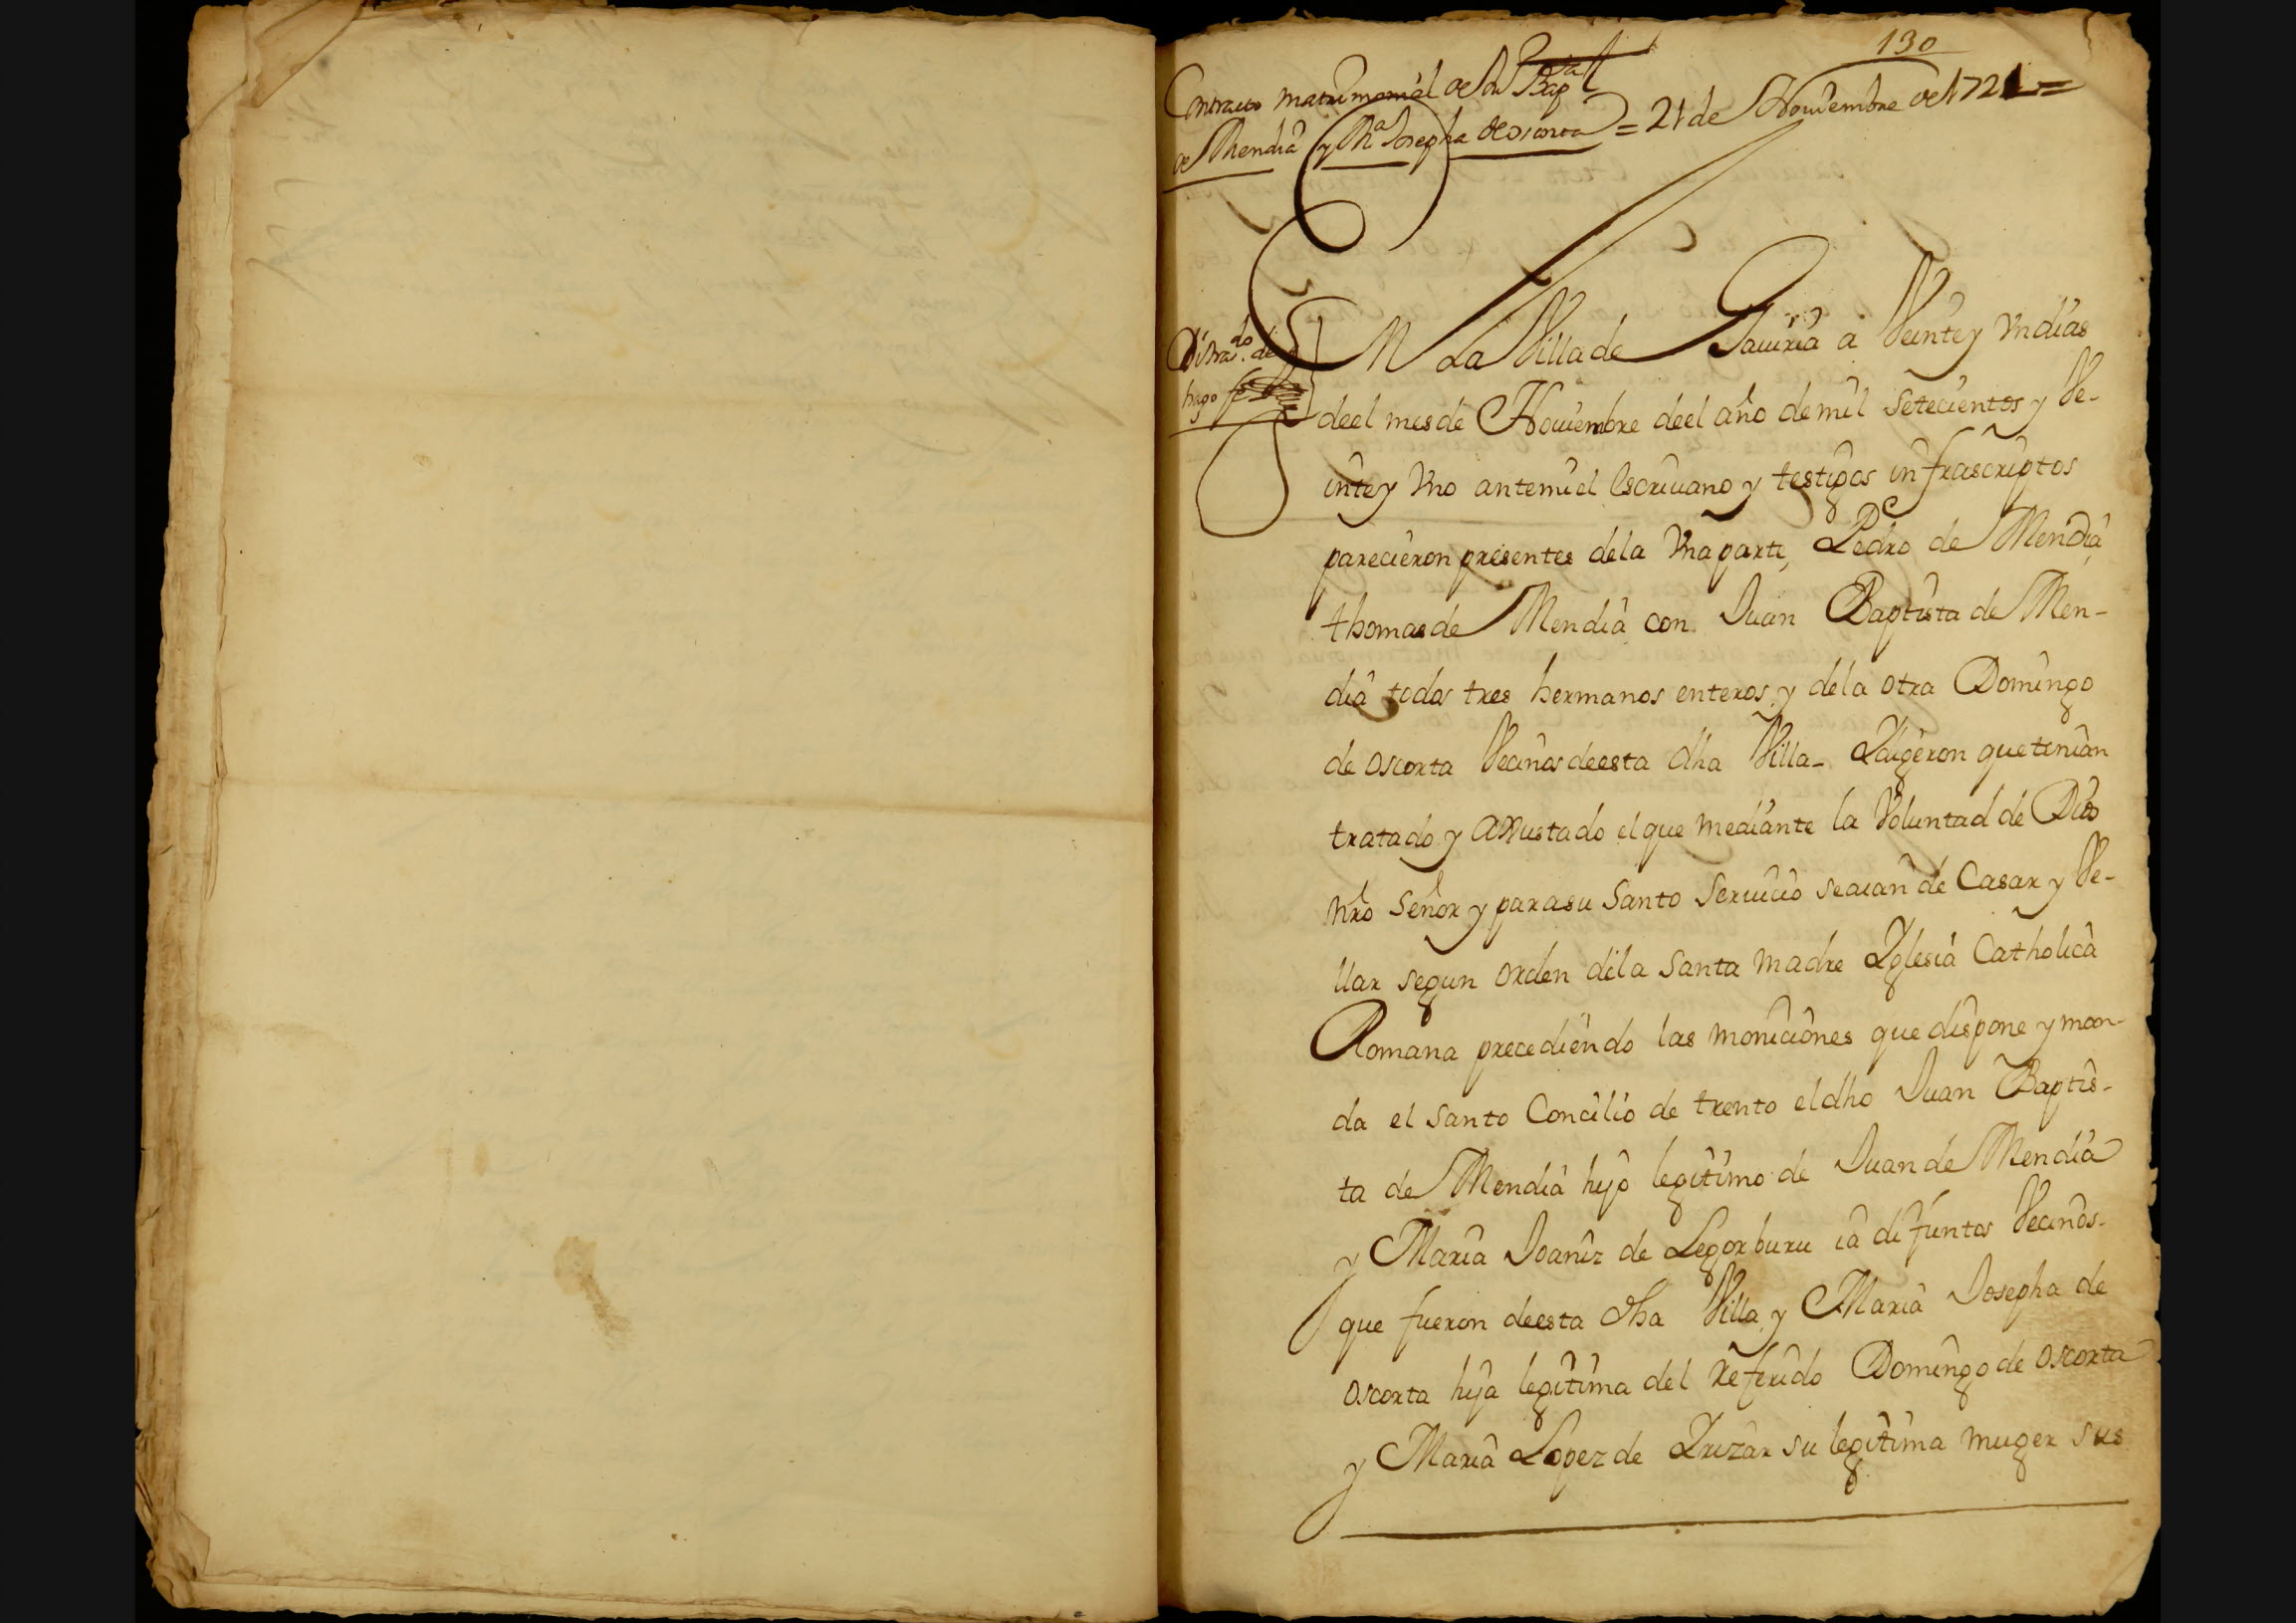 130
Contracto matrimonial de Ju Bapta
de Mendia y Ma Josepha de oscorta = 21 de Nouiembre de 1721 =
En La Villa de Gauiria a Veinte y Vn dias
deel mes de Nouiembre deel año de mil setecientos y Ve-
inte y Vno ante mi el escriuano y testigos infrascriptos
parecieron presentes de la Vna parte, Pedro de Mendia
thomas de Mendia con Juan Baptista de Men-
dia todos tres hermanos enteros, y de la otra Domingo
de oscorta Vecinos de esta dha Villa_ I digeron que tenian
tratado y axustado el que mediante la Voluntad de Dios
nro señor y para su santo seruicio se aian de Casar y Ve-
llar segun orden de la santa madre Iglesia Catholica
Romana precediendo las moniciones que dispone y man-
da el santo Concilio de trento el dho Juan Baptis-
ta de Mendia hijo legitimo de Juan de Mendia
y Maria Joaniz de Legorburu ia difuntos Vecinos
que fueron de esta dha Villa, y Maria Josepha de
oscorta hija legitima del referido Domingo de oscorta
y Maria Lopez de Irizar su legitima muger sus
do
Distra. de
hago fe